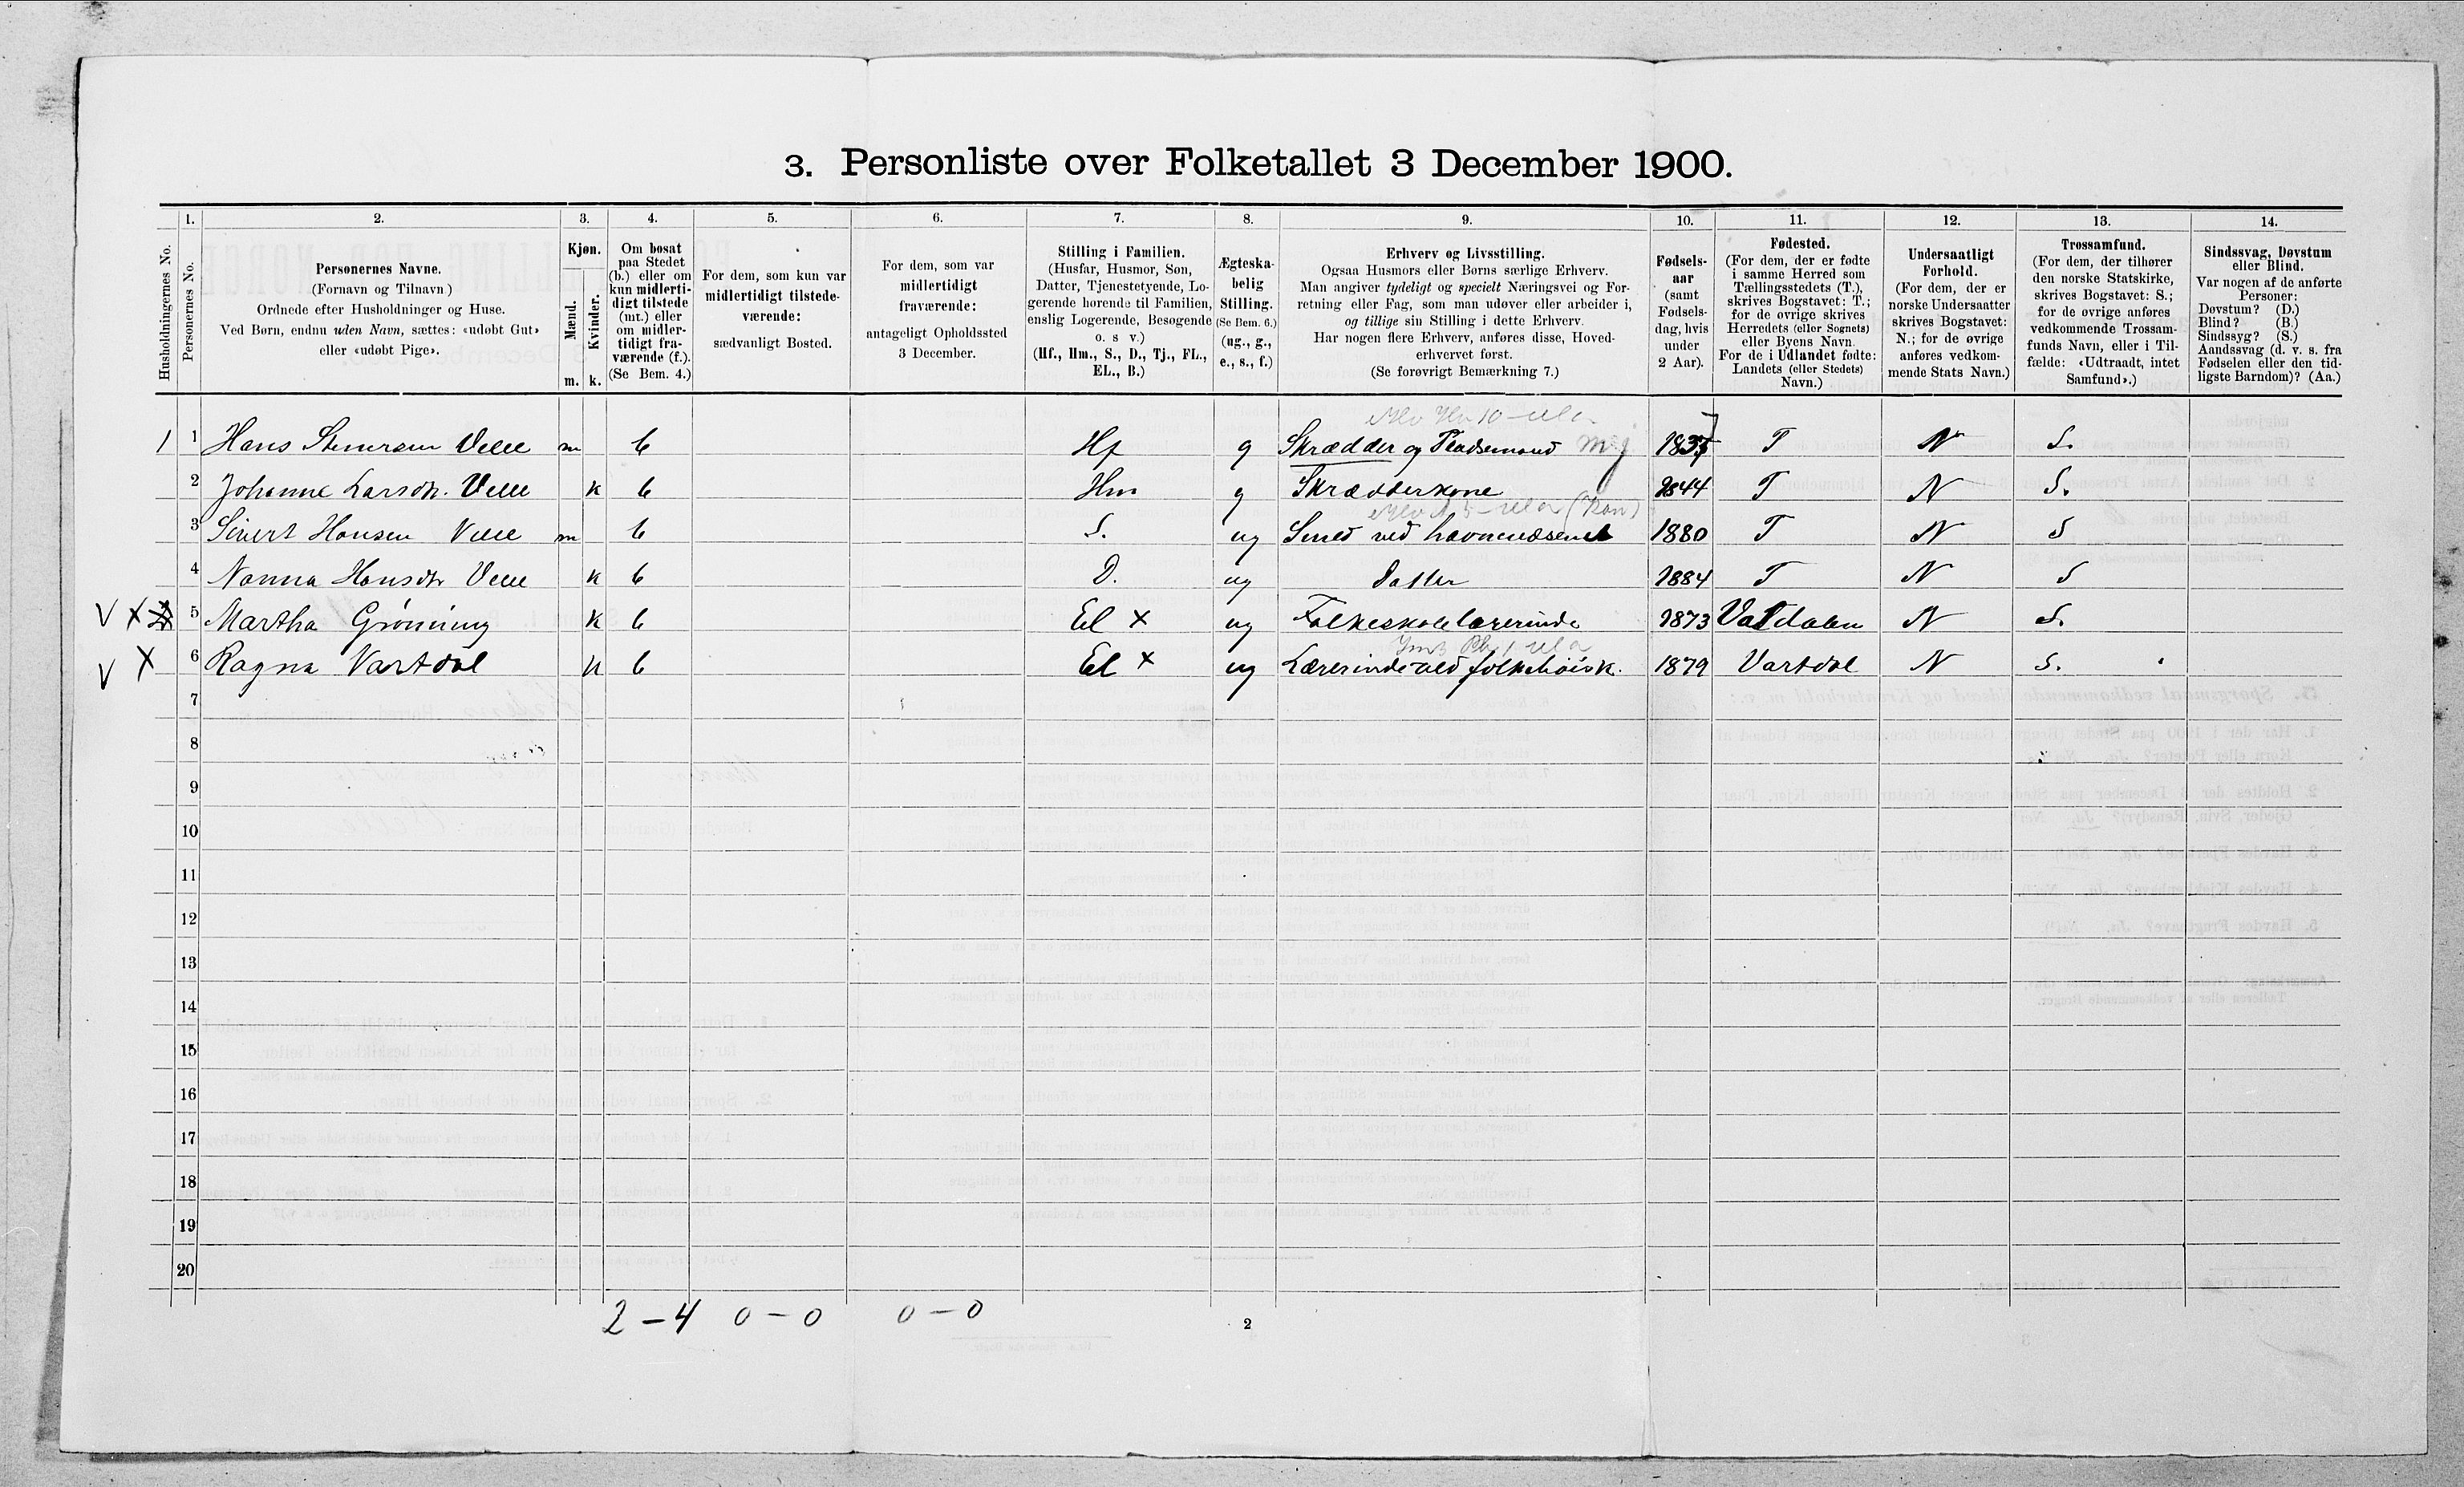 3. Personliste over Folketallet 3 December 1900.
Husholdningernes No.
1.
Personernes No.
2.
Personernes Navne.
(Fornavn og Tilnavn)
Ordnede efter Husholdninger og Huse.
Ved Børn, endnu uden Navn, sættes: «udøbt Gut»
eller «udøbt Pige».
3.
Kjøn.
Mænd.
Kvinder.
m. k.
4.
Om bosat
paa Stedet
(b.) eller om
kun midlerti-
digt tilstede
(mt.) eller
om midler-
tidigt fra-
værende (f.).
(Se Bem. 4.)
5.
For dem, som kun var
midlertidigt tilstede-
værende:
sædvanligt Bosted.
6.
For dem, som var
midlertidigt
fraværende:
antageligt Opholdssted
3 December.
7.
Stilling i Familien.
(Husfar, Husmor, Søn,
Datter, Tjenestetyende, Lo-
gerende hørende til Familien,
enslig Logerende, Besøgende
o. s v.)
(Hf., Hm., S., D., Tj., FL.,
EL., B.)
8.
Ægteska-
belig
Stilling.
(Se Bem. 6.)
(ug., g.,
e., s., f.)
9.
Erhverv og Livsstilling.
Ogsaa Husmors eller Børns særlige Erhverv.
Man angiver tydeligt og specielt Næringsvei og For-
retning eller Fag, som man udøver eller arbeider i,
og tillige sin Stilling i dette Erhverv.
Har nogen flere Erhverv, anføres disse, Hoved-
erhvervet først.
(Se forøvrigt Bemærkning 7.)
10.
Fødsels-
aar
(samt
Fødsels-
dag, hvis
under
2 Aar).
11.
Fødested.
(For dem, der er fødte
i samme Herred som
Tællingsstedets (T.),
skrives Bogstavet: T.;
for de øvrige skrives
Herredets (eller Sognets)
eller Byens Navn.
For de i Udlandet fødte:
Landets (eller Stedets)
Navn.)
12.
Undersaatligt
Forhold.
(For dem, der er
norske Undersaatter
skrives Bogstavet:
N.; for de øvrige
anføres vedkom-
mende Stats Navn.)
13.
Trossamfund.
(For dem, der tilhører
den norske Statskirke,
skrives Bogstavet: S.;
for de øvrige anføres
vedkommende Trossam-
funds Navn, eller i Til-
fælde: «Udtraadt, intet
Samfund».)
14.
Sindssvag, Døvstum
eller Blind.
Var nogen af de anførte
Personer:
Døvstum? (D.)
Blind? (B.)
Sindssyg? (S.)
Aandssvag (d. v. s. fra
Fødselen eller den tid-
ligste Barndom)? (Aa.)
1 1 Hans Stenersen Velle m b Hf g Skrædder og Pladsemand 1837 T N S.
2 Johanne Larsdtr. Velle k b Hm g Skrædderkone 1844 T N S.
3 Sivert Hansen Velle m b S. ug Smed ved havnevæsenet 1880 T N S
4 Nanna Hansdtr Velle k b D. ug Datter 1884 T N S
V X 5 Martha Grønning k b El X ug Folkeskolelærerinde 1873 Valdalen N S.
V X 6 Ragna Vartdal k b El X ug Lærerinde ved folkehøisk. 1879 Vartdal N S.
7
8
9
10
11
12
13
14
15
16
17
18
19
20
2 – 4 0 – 0 0 – 0
2